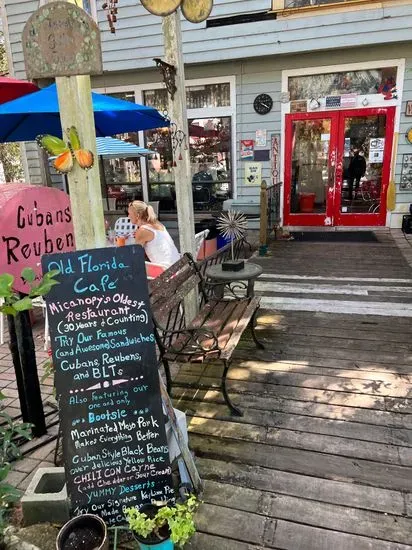 Cubans
Reuben
Old Florida
Cafe
Micanopy's Oldest
Restaurant
(30 Years & Counting)
Try Our Famous
(and Awesome) Sandwiches
Cubans, Reubens,
and BLTs
Also Featuring our
one and only
"Bootsie"
Marinated Mojo Pork
Makes Everything Better
Cuban Style Black Beans
over delicious Yellow Rice
CHILI CON Carne
(add Cheddar or Sour Cream)
Yummy Desserts
Try Our Signature Key Lime Pie
Made Bread Pudding